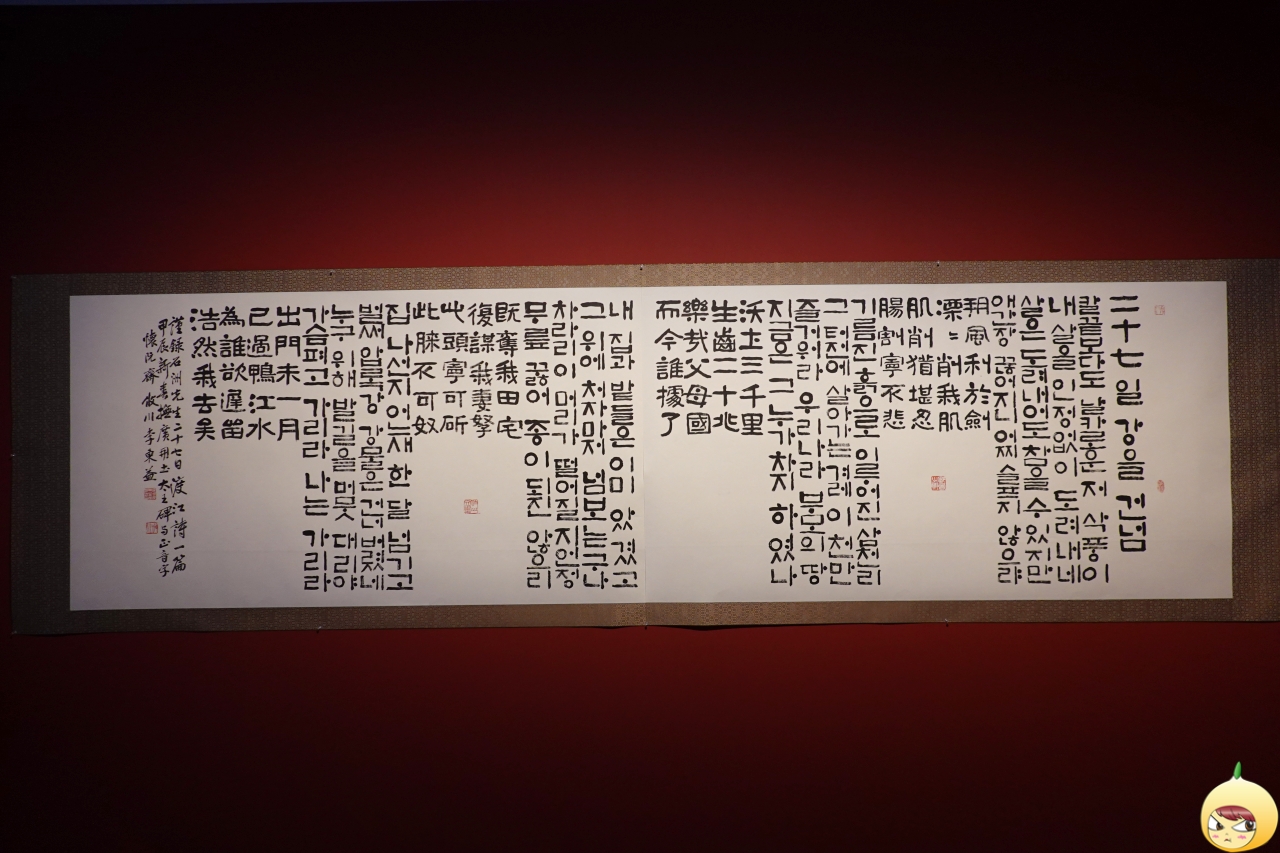 二十七일 강을 건넘
칼끝보다도 날카로운 저 삭풍이
내 살을 인정없이 도려내네
살은 도려내어도 참을 수 있지만
애간장 끊어지니 어찌 슬프지 않으랴
朔風利於劍
凓〻削我肌
肌削猶堪忍
腸割寧不悲
기름진 흙으로 이루어진 삼천리
그 터전에 살아가는 겨레 이천만
즐거워라 우리나라 부모의 땅
지금은 그 누가 차지 하였나
沃土三千里
生齒二十兆
樂哉父母國
而今誰據了
내 집과 밭들은 이미 앗겼고
그 위에 처자마저 넘보는구나
차라리 이 머리가 떨어질지언정
무릎 꿇어 종이 되진 않으리
既奪我田宅
復謀我妻孥
此頭寧可斫
此膝不可奴
집 나선지 어느새 한 달 넘기고
벌써 압록강 강물은 건너 버렸네
누구 위해 발길을 머뭇대리야
가슴 펴고 가리라 나는 가리라
出門未一月
已過鴨江水
為誰欲遲留
浩然我去矣
謹錄石洲先生二十七日渡江詩一篇
甲辰新春撫廣開土太王碑与正音字